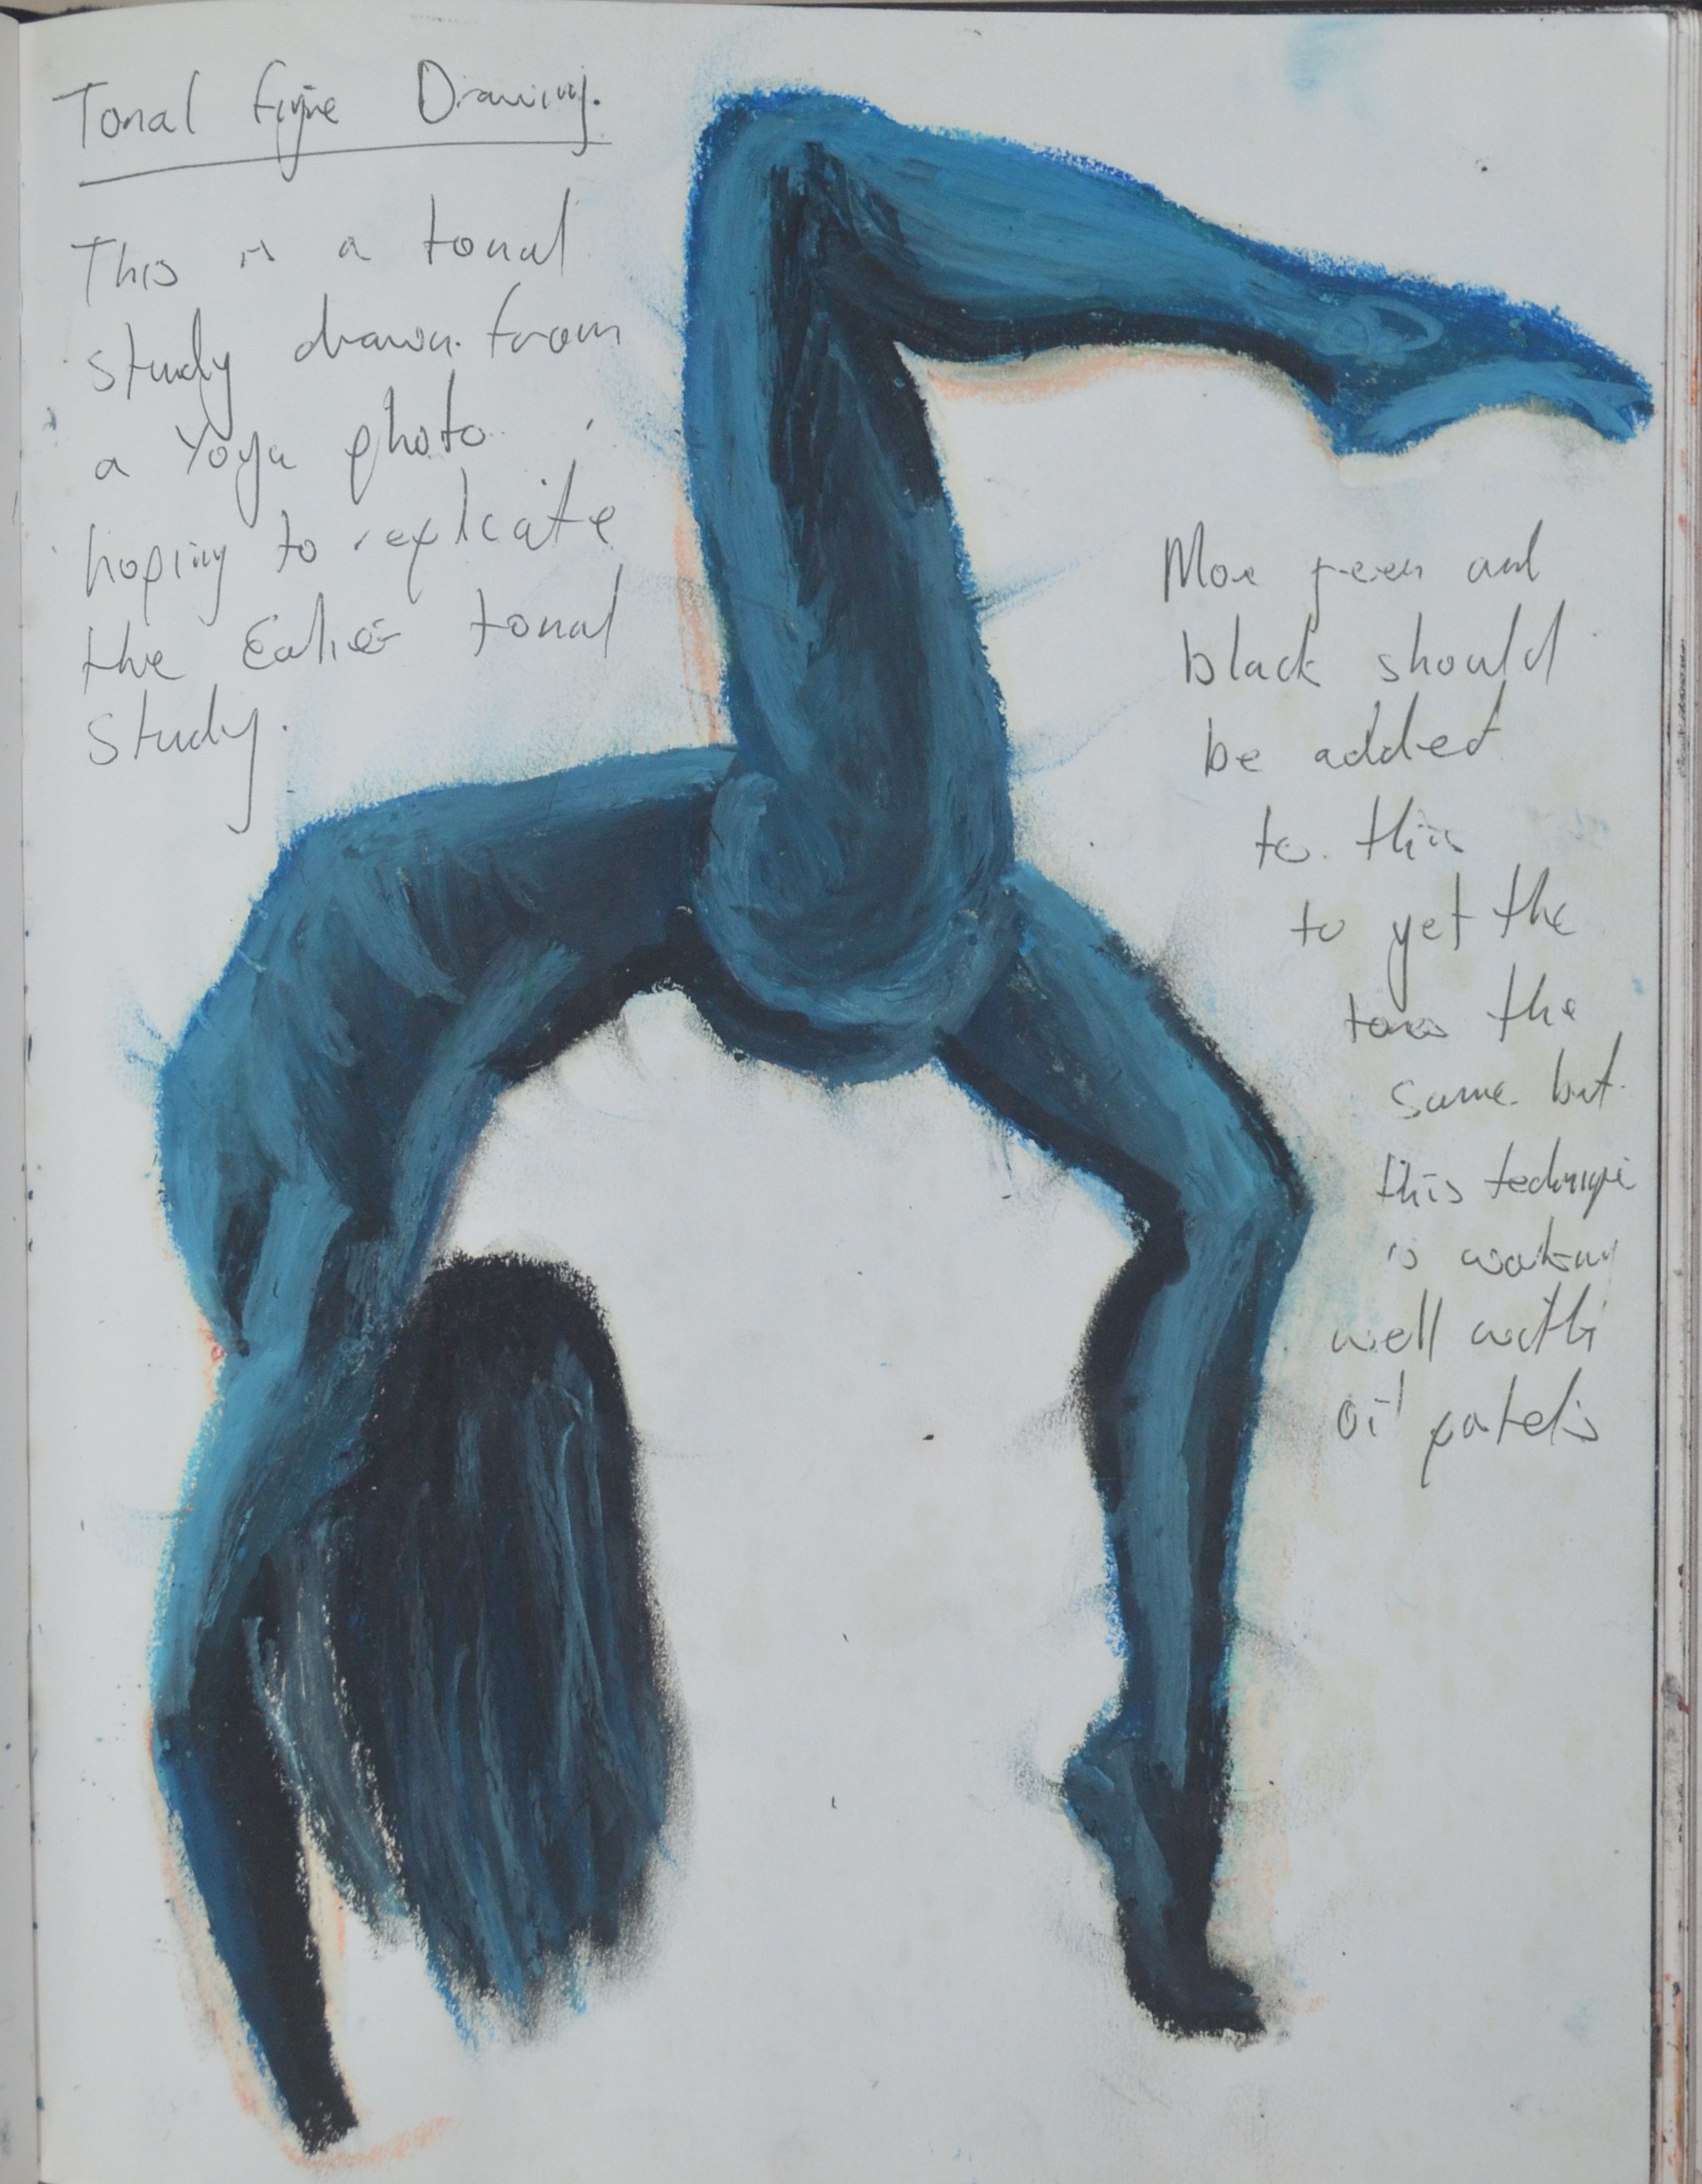 Tonal Figure Drawing.
This is a tonal
study drawn from
a Yoga photo
hoping to replicate
the Ealier tonal
study.
More green and
black should
be added
to this
to get the
tones the
same but
this technique
is working
well with
oil patels